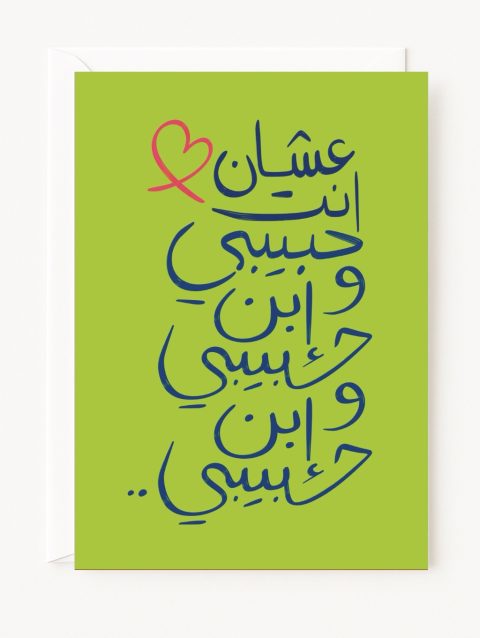 عشان
انت
حبيبي
و ابن
حبيبي
و ابن
حبيبي ..